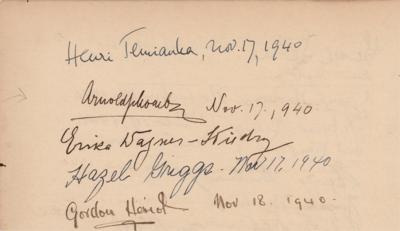 Henri Temianka, Nov. 17, 1940
Arnold Schoenberg Nov. 17, 1940
Erika Wagner-Stiedry
Hazel Griggs - Nov 17, 1940
Gordon Nov 18. 1940.